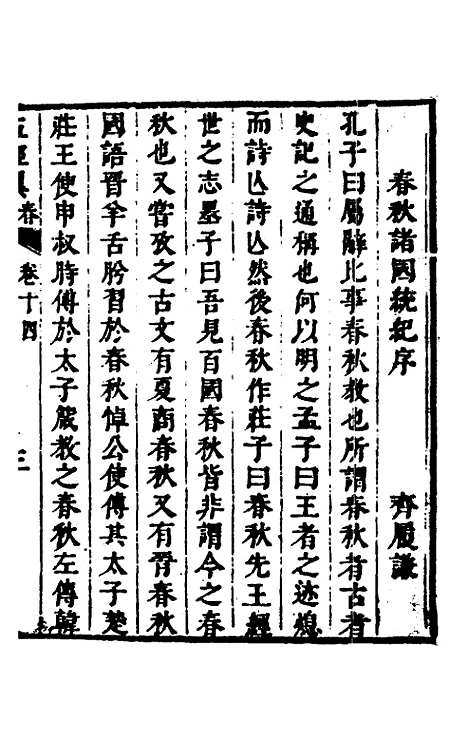 春秋諸國統紀序　齊履謙
孔子曰屬辭比事春秋教也所謂春秋者古者
史記之通稱也何以明之孟子曰王者之迹熄
而詩亾詩亾然後春秋作莊子曰春秋先王經
世之志墨子曰吾見百國春秋皆非謂今之春
秋也又嘗攷之古文有夏商春秋又有晉春秋
國語晉羊舌肸習於春秋悼公使傅其太子楚
莊王使申叔時傅於太子箴教之春秋左傳韓
春
卷十四
三